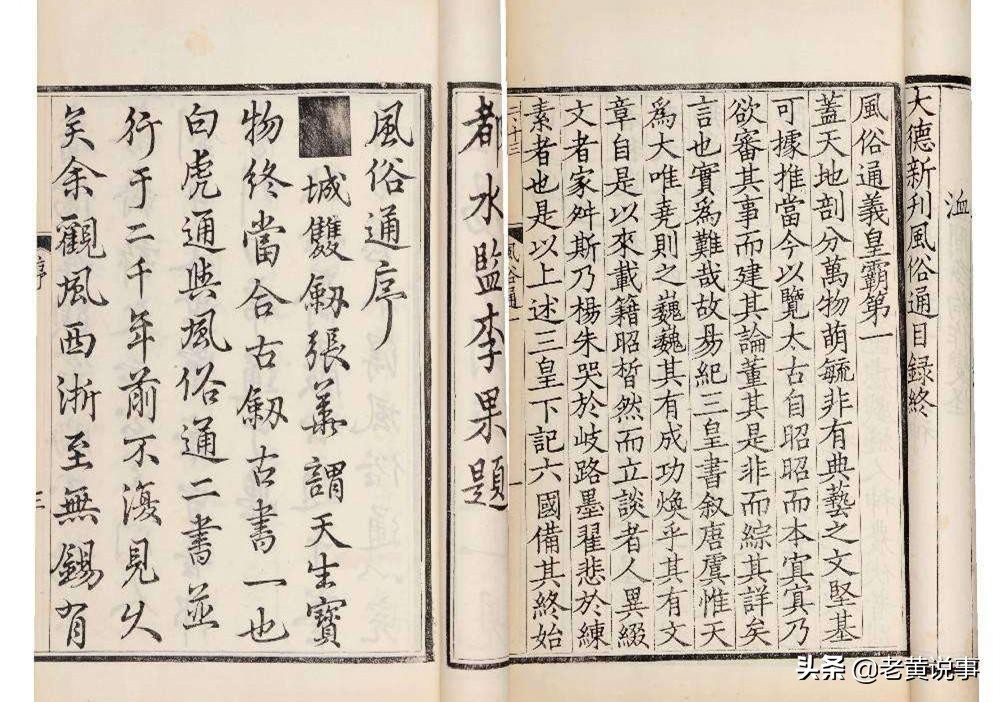 大德新刊風俗通目録終
風俗通義皇霸第一
蓋天地剖分萬物萌毓非有典藝之文堅基
可據推當今以覽太古自昭昭而本㝠㝠乃
欲審其事而建其論董其是非而綜其詳矣
言也實爲難哉故易紀三皇書叙唐虞惟天
爲大唯堯則之巍巍其有成功煥乎其有文
章自是以來載籍昭晳然而立談者人異綴
文者家舛斯乃楊朱哭於岐路墨翟悲於練
素者也是以上述三皇下記六國備其終始
風俗通一
都水監李果題
風俗通序
城雙劔張華謂天生寳
物終當合古劔古書一也
白虎通與風俗通二書並
行于二千年前不復見乆
矣余觀風西浙至無錫有
序
头条 @老黄说事